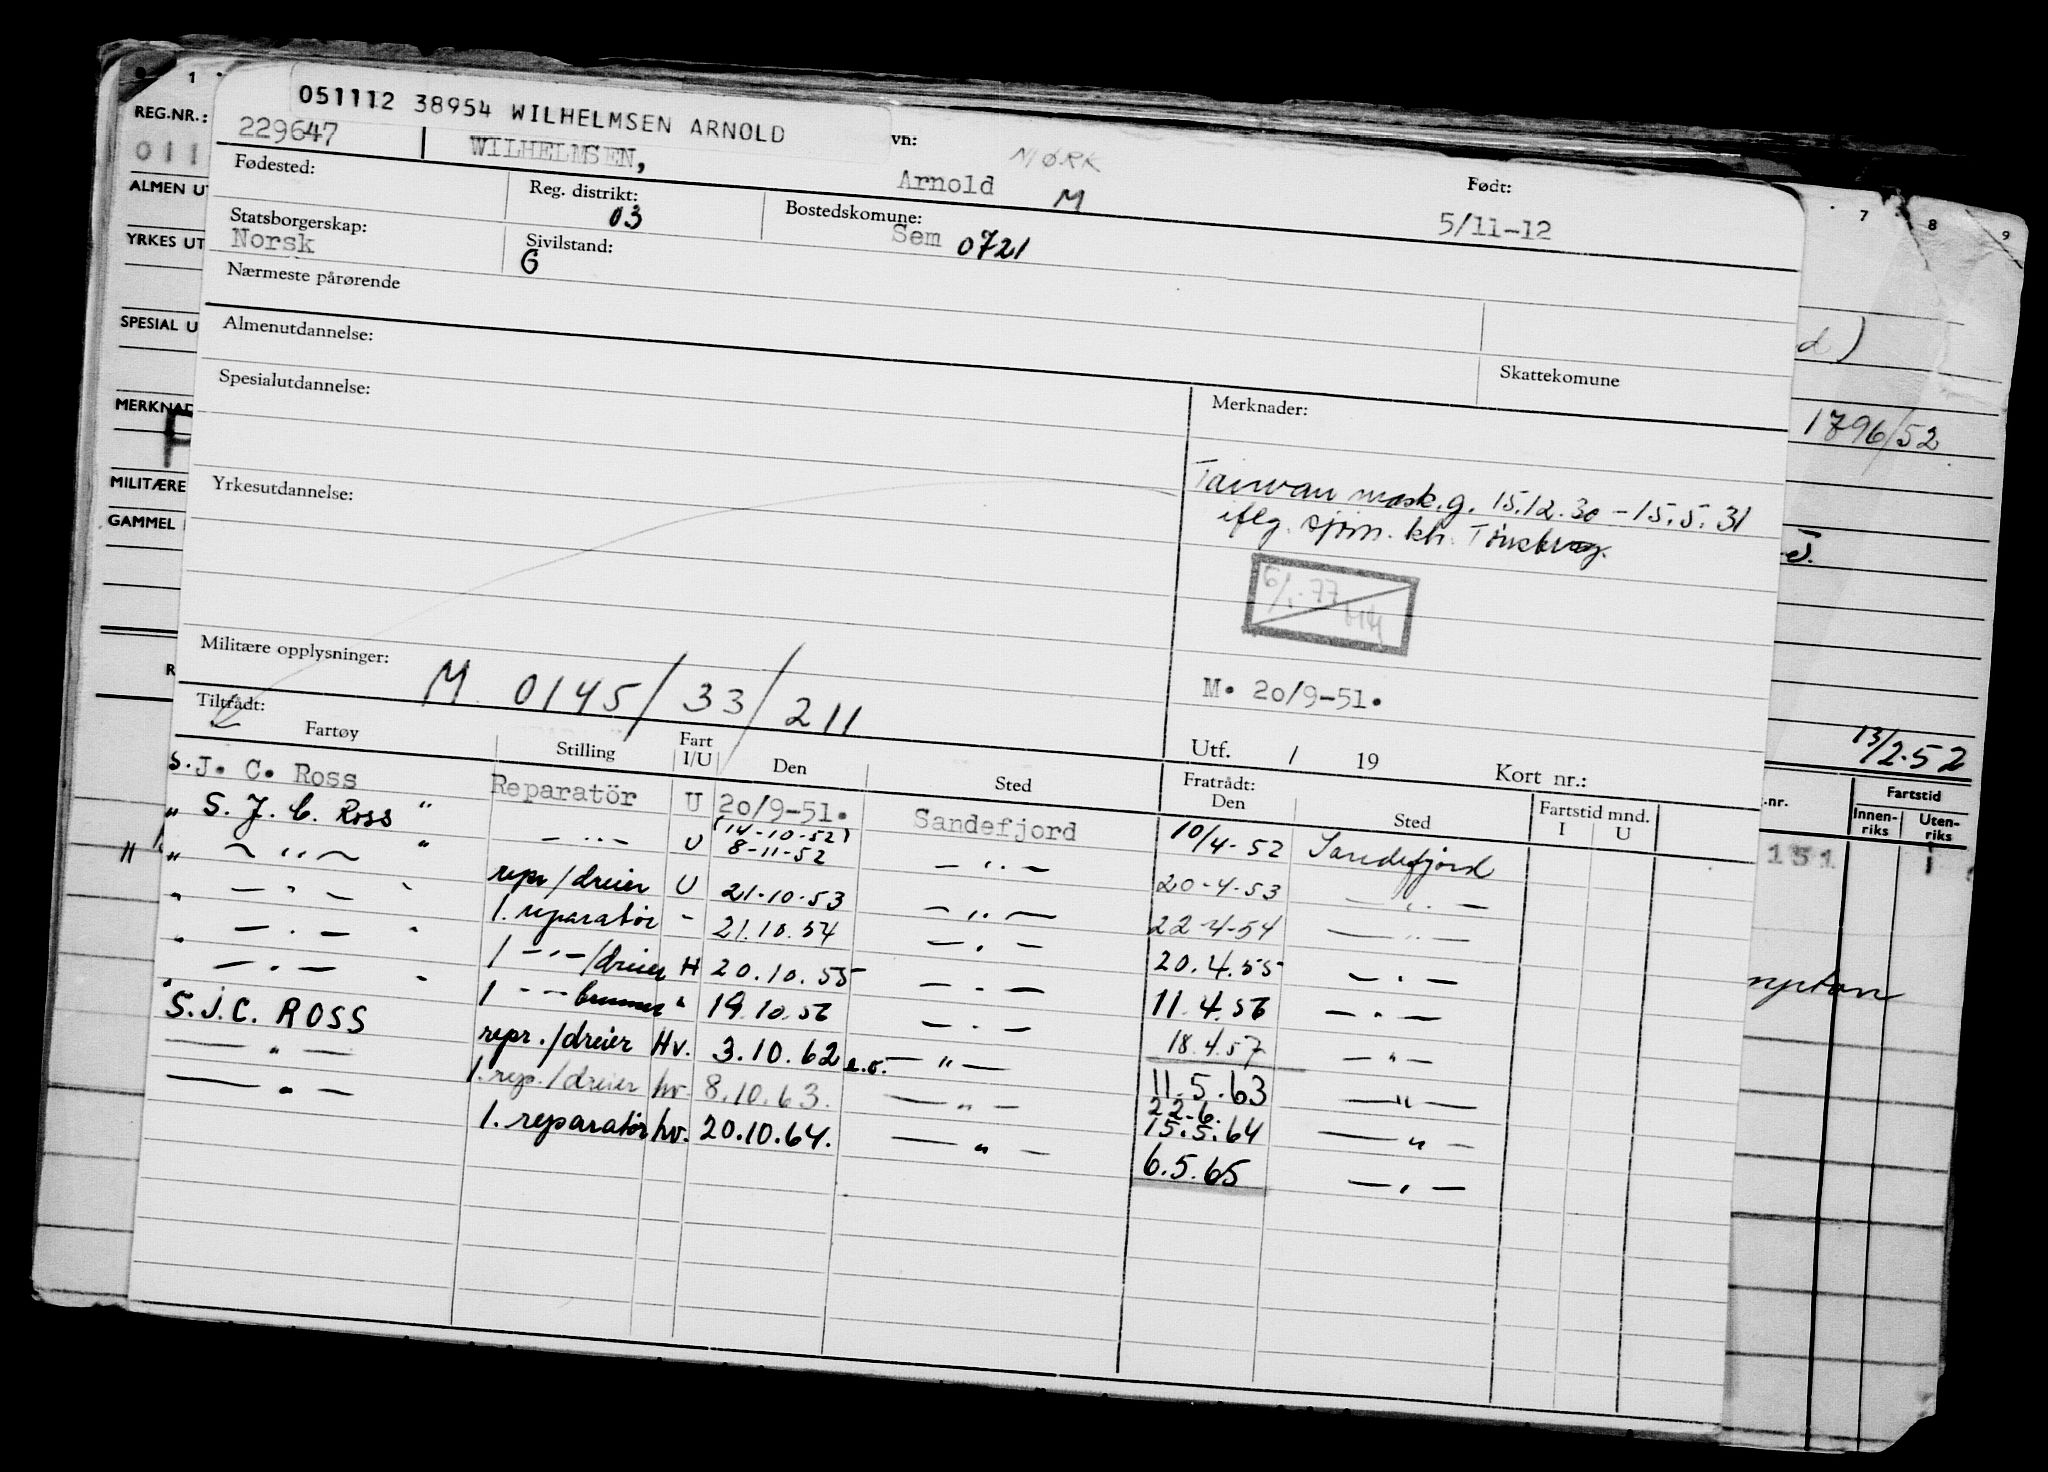 1
051112 38954 WILHELMSEN ARNOLD
REG.NR.: 229647 WILHELMSEN, vn: Arnold MØRK M Født: 5/11-12
011
Fødested: Reg. distrikt: 03 Bostedskomune: Sem 0721
7 8 9
ALMEN UT
Statsborgerskap: Norsk Sivilstand: G
YRKES UT
Nærmeste pårørende
SPESIAL U
Almenutdannelse: Skattekomune
d)
Spesialutdannelse: Merknader:
MERKNAD
1796/52
Taiwan mask.g. 15.12.30 - 15.5.31
MILITÆRE
Yrkesutdannelse: iflg. sjøm. kh. Tönsberg.
GAMMEL
6/1-77
Militære opplysninger: M 0145/33/211
M. 20/9-51.
13/2-52
Tiltrådt: Utf. / 19 Kort nr.:
Fartøy Stilling Fart I/U Den Sted Fratrådt: Den Sted Fartstid mnd. I U
.nr. Fartstid Innen-riks Uten-riks
151
S.J. C. Ross Reparatör U 20/9-51. Sandefjord 10/4-52 Sandefjord
" S. J. C. Ross " — " — U (14-10-52) 8-11-52 — " — 20-4-53 — " —
" — " — " repr/dreier U 21-10-53 — " — 22-4-54 — " —
" — " — " 1. reparatör " 21.10.54 — " — 20.4.55 — " —
" — " — " 1 — " —/dreier H 20.10.55 — " — 11.4.56 — " —
" — " — " 1 — " — " 19.10.56 — " — 18.4.57 — " —
S.J.C. ROSS repr./dreier Hv. 3.10.62 e.o. — " — 11.5.63 — " —
— " — 1. rep./dreier hv. 8.10.63. — " — 22.6. 15.5.64 — " —
— " — 1. reparatör hv. 20.10.64. — " — 6.5.65 — " —